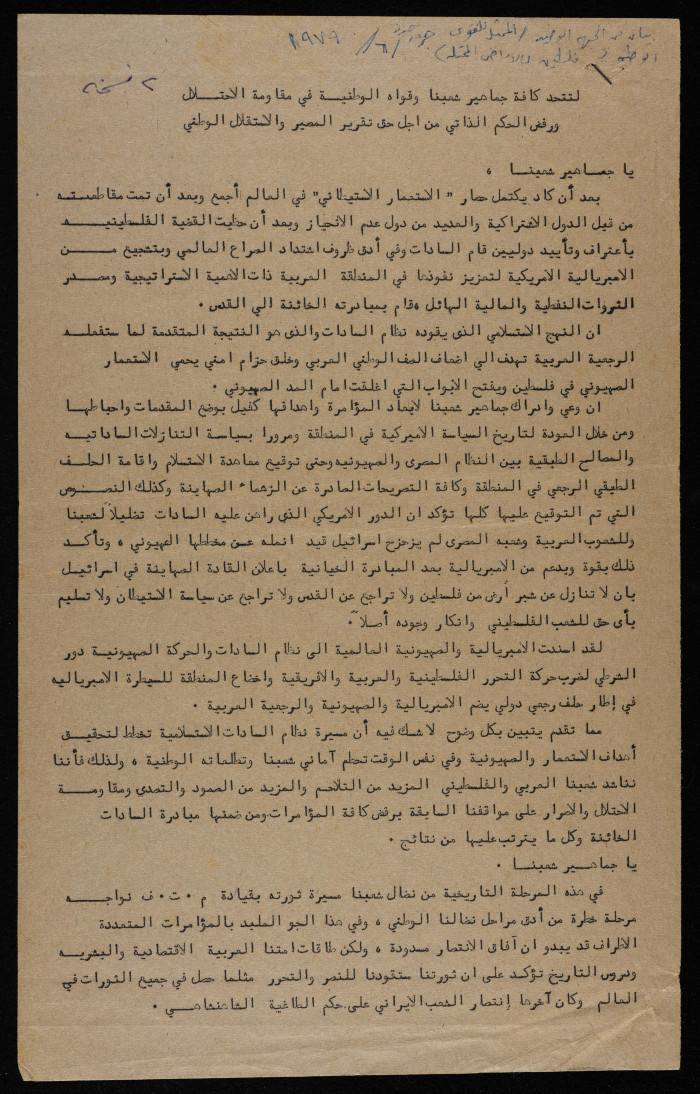 بيان من الجبهة الوطنية / الممثل للقوى
الوطنية في فلسطين (الاراضي المحتلة) / ٦ / ١٩٧٩
٢ نسخة
لتتحد كافة جماهير شعبنا وقواه الوطنية في مقاومة الاحتلال
ورفض الحكم الذاتي من اجل حق تقرير المصير والاستقلال الوطني
يا جماهير شعبنا ،
بعد أن كاد يكتمل حصار " الاستعمار الاستيطاني" في العالم أجمع وبعد أن تمت مقاطعته
من قبل الدول الاشتراكية والعديد من دول عدم الانحياز وبعد أن حظيت القضية الفلسطينيه
بأعتراف وتأييد دوليين قام السادات وفي أدق ظروف اشتداد الصراع العالمي وبتشجيع من
الامبريالية الامريكية لتعزيز نفوذها في المنطقة العربية ذات الاهمية الاستراتيجية ومصدر
الثروات النفطية والمالية الهائل ،قام بمبادرته الخائنة الي القدس .
ان النهج الاستسلامي الذى يقوده نظام السادات والذى هو النتيجة المتقدمة لما ستفعله
الرجعية العربية تهدف الي اضعاف الصف الوطني العربي وخلق حزام امني يحمي الاستعمار
الصهيوني في فلسطين ويفتح الابواب التي اغلقت امام المد الصهيوني .
ان وعي وادراك جماهير شعبنا لابعاد المؤامرة واهدافها كفيل بوضع المقدمات واحباطها
ومن خلال العودة لتاريخ السياسة الاميركية في المنطقة ومرورا بسياسة التنازلات الساداتيه
والمصالح الطبقية بين النظام المصرى والصهيونيه وحتى توقيع معاهدة الاستسلام واقامة الحلف
الطبقي الرجعي في المنطقة وكافة التصريحات الصادرة عن الزعماء الصهاينة وكذلك النصوص
التي تم التوقيع عليها كلها تؤكد ان الدور الامريكي الذى راهن عليه السادات تضليلاً لشعبنا
وللشعوب العربية وشعبه المصرى لم يزحزح اسرائيل قيد انمله عن مخططها الصهيوني ، وتأكد
ذلك بقوة وبدعم من الامبريالية بعد المبادرة الخيانية باعلان القادة الصهاينة في اسرائيل
بان لا تنازل عن شبر أرض من فلسطين ولا تراجع عن القدس ولا تراجع عن سياسة الاستيطان ولا تسليم
بأى حق للشعب الفلسطيني وانكار وجوده أصلاً .
لقد اسندت الامبريالية والصهيونية العالمية الى نظام السادات والحركة الصهيونية دور
الشرطي لضرب حركة التحرر الفلسطينية والعربية والافريقية واخضاع المنطقة للسيطرة الامبرياليه
في إطار حلف رجعي دولي يضم الامبريالية والصهيونية والرجعية العربية .
مما تقدم يتبين بكل وضوح لاشك فيه أن مسيرة نظام السادات الاستسلامية تخطط لتحقيق
أهداف الاستعمار والصهيونية وفي نفس الوقت تحطم آماني شعبنا وتطلعاته الوطنية ، ولذلك فأننا
نناشد شعبنا العربي والفلسطيني المزيد من التلاحم والمزيد من الصمود والتصدى ومقاومة
الاحتلال والاصرار على مواقفنا السابقة برفض كافة المؤامرات ومن ضمنها مبادرة السادات
الخائنة وكل ما يترتب عليها من نتائج .
يا جماهير شعبنا .
في هذه المرحلة التاريخية من نضال شعبنا مسيرة ثورته بقيادة م . ت . ف نواجه
مرحلة خطرة من أدق مراحل نضالنا الوطني ، وفي هذا الجو الملبد بالمؤامرات المتعددة
الاطراف قد يبدو ان آفاق الانتصار مسدودة ، ولكن طاقات امتنا العربية الاقتصادية والبشريه
ودروس التاريخ تؤكد على ان ثورتنا ستقودنا للنصر والتحرر مثلما حصل في جميع الثورات في
العالم وكان آخرها إنتصار الشعب الايراني على حكم الطاغية الشاهنشاهي .